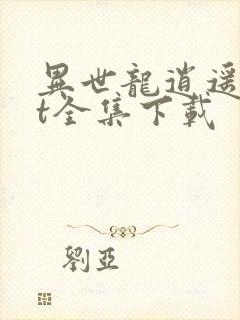 異世龍逍遥
t全集下載
劉亞